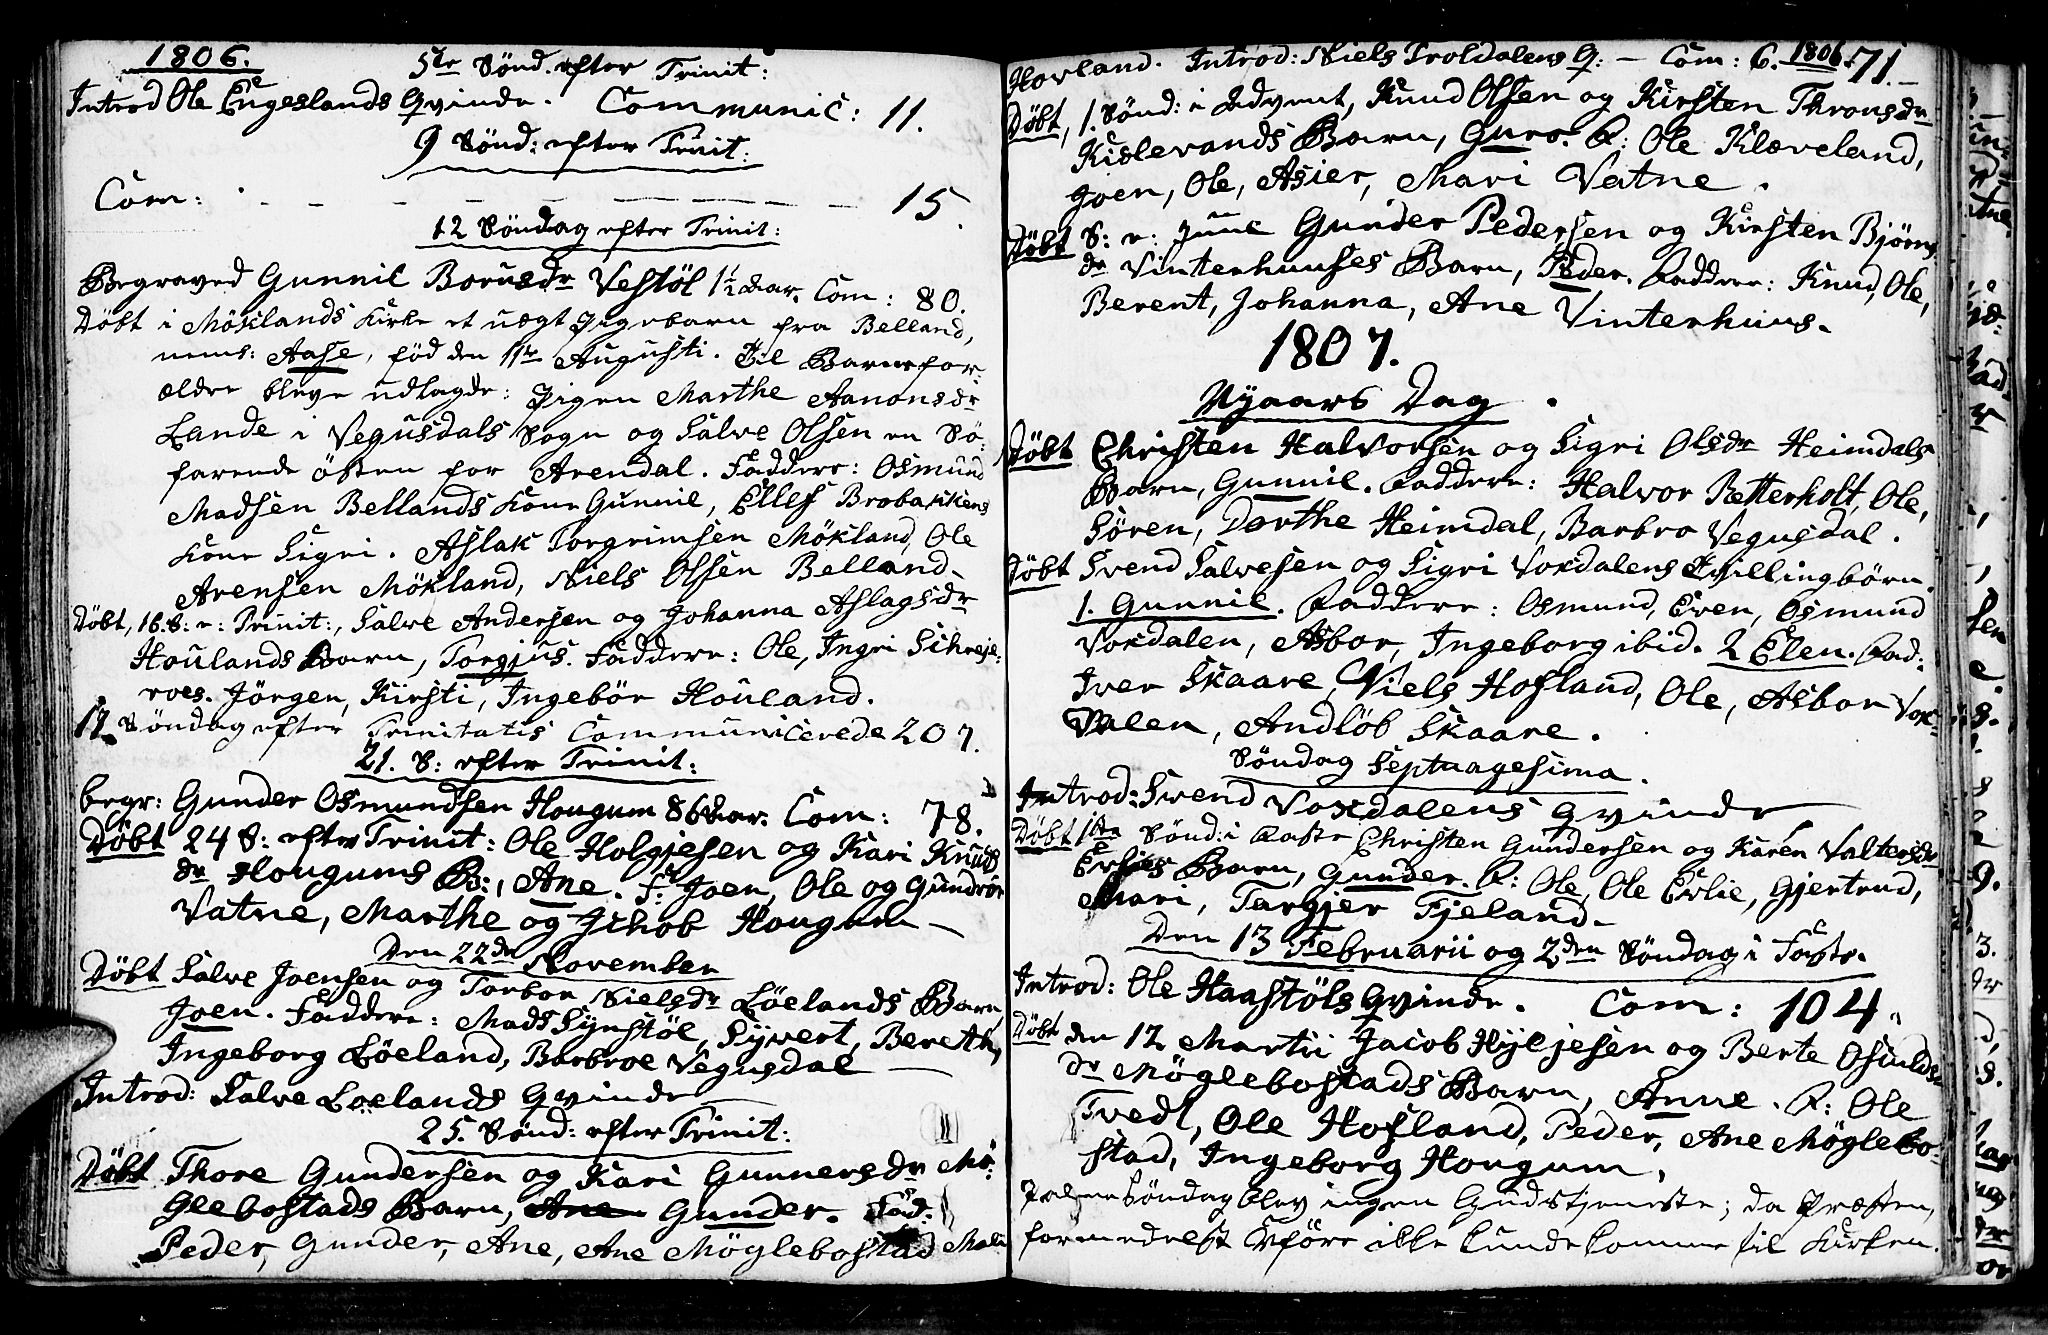 1806.
5te Sönd. efter Trinit:
Introd Ole Engeslands Qvinde. Communic: 11.
9 Sönd: efter Trinit:
Com: 15.
12 Söndag efter Trinit:
Begraved Gunnil Borusdr Vestöl 1½ Aar. Com: 80.
Döbt i Möklands Kirke et uægt Pigebarn fra Belland,
nems: Aase, föd den 11te Augusti. Til Barnefor-
ældre bleve udlagde: Pigen Marthe Aanonsdr
Lande i Vegusdals Sogn og Salve Olsen en Sö-
farende östen for Arendal. Faddere: Osmund
Madsen Bellands Kone Gunnil, Ellef Brobakkens
Kone Sigri. Aslak Torgrimsen Mökland, Ole
Arensen Mökland, Niels Olsen Belland.
Döbt, 16. S: e: Trinit:, Salve Andersen og Johanna Aslagsdr
Houlands Barn, Torgjus. Faddere: Ole, Ingri Schreje-
roes. Jörgen, Kirsti, Ingebör Houland.
17. Söndag efter Trinitatis Communicerede 207.
21. S: efter Trinit:
begr: Gunder Osmundsen Hougum 86 Aar. Com: 78.
Döbt 24 S: efter Trinit: Ole Holgjesen og Kari Knuds
dr Hougums B:, Ane. F: Joen, Ole og Gundrör
Vatne, Marthe og Jehob Hougum
Den 22de November
Döbt Salve Joensen og Torbor Nielsdr Löelands Barn,
Joen. Faddere: Mads Synstöl, Syvert, Bereth,
Ingeborg Löeland, Barbroe Vegusdal
Introd: Salve Loelands Qvinde
25. Sönd: efter Trinit:
Döbt Thore Gundersen og Kari Gunnersdr Mö-
glebostads Barn, Ane Gunder. Fad:
Peder, Gunder, Ane, Ane Möglebostad
Hovland. Introd: Niels Troldalens Q: - Com: 6. 1806. 71.
Döbt, 1. Sönd: i Advent, Knud Olsen og Kirsten Thronsdr
Kislevands Barn, Guro. F: Ole Klæveland,
Joen, Ole, Asier, Mari Vatne.
Döbt S: e: Juul Gunder Pedersen og Kirsten Bjöns
dr Vinterhuuses Barn, Peder. Faddere: Knud, Ole,
Berent, Johanna, Ane Vinterhuus.
1807.
Nyaars Dag.
Döbt Christen Halvorsen og Sigri Olsdr Heimdals
Barn, Gunnil. Faddere: Halvor Retterholt, Ole,
Sören, Dorthe Heimdal, Barbro Vegusdal.
Döbt Svend Salvesen og Sigri Voxdalens Tvillingbörn.
1. Gunnil. Faddere: Osmund, Even, Osmund
Voxdalen, Asbor, Ingeborg ibid. 2 Elen. Fad:
Iver Skaare, Niels Hofland, Ole, Asbor Vox-
dalen, Andlöb Skaare.
Söndag Septuagesima.
Introd: Svend Voxdalens Qvinde
Döbt 1ste Sönd: i Faste Christen Gundersen og Karen Valtersdr
Erlies Barn, Gunder. F: Ole, Ole Erlie, Gjertrud,
Mari, Targjer Fjeland.
Den 13 Februarii og 2den Söndag i Faste.
Introd: Ole Haastöls Qvinde. Com: 104.
Döbt den 12 Martii Jacob Hyljesen og Berte Osulds-
dr Möglebostads Barn, Anne. F: Ole
Tvedt, Ole Hofland, Peder, Ane Möglebo-
stad, Ingeborg Hougum.
Palmesöndag blev ingen Gudstjeneste; da Præsten,
formedelst Uföre ikke kunde komme til Kirken.